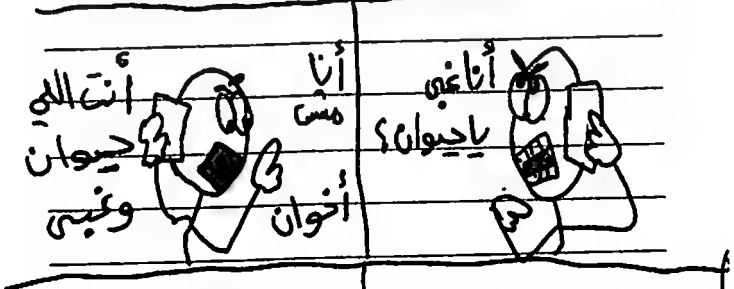 أنا غبي
ياحيوان؟
أنا
مش
أخوان
أنت اللي
حيوان
وغبي